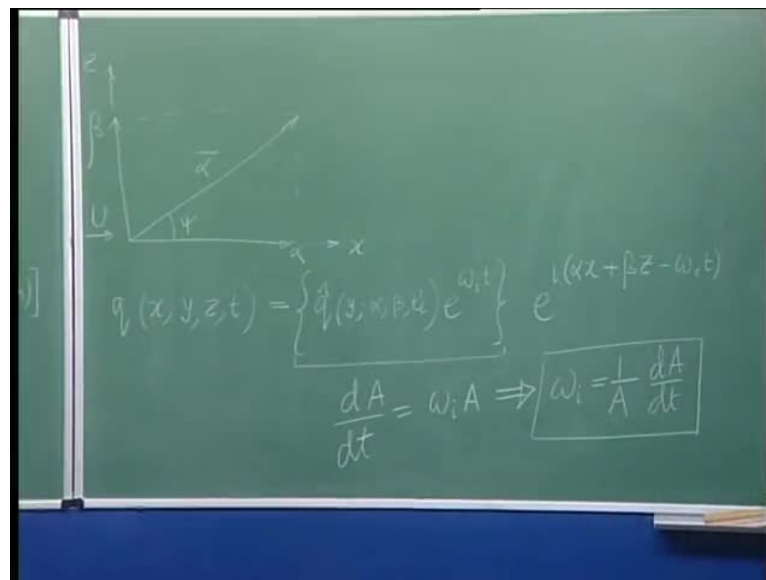 z
β
ᾱ
U
ψ
α
x
)]
q(x, y, z, t) = {q̂(y; α, β, ω) e^{ω_i t}} e^{i(αx + βz - ω_r t)}
dA/dt = ω_i A ⇒ ω_i = 1/A dA/dt